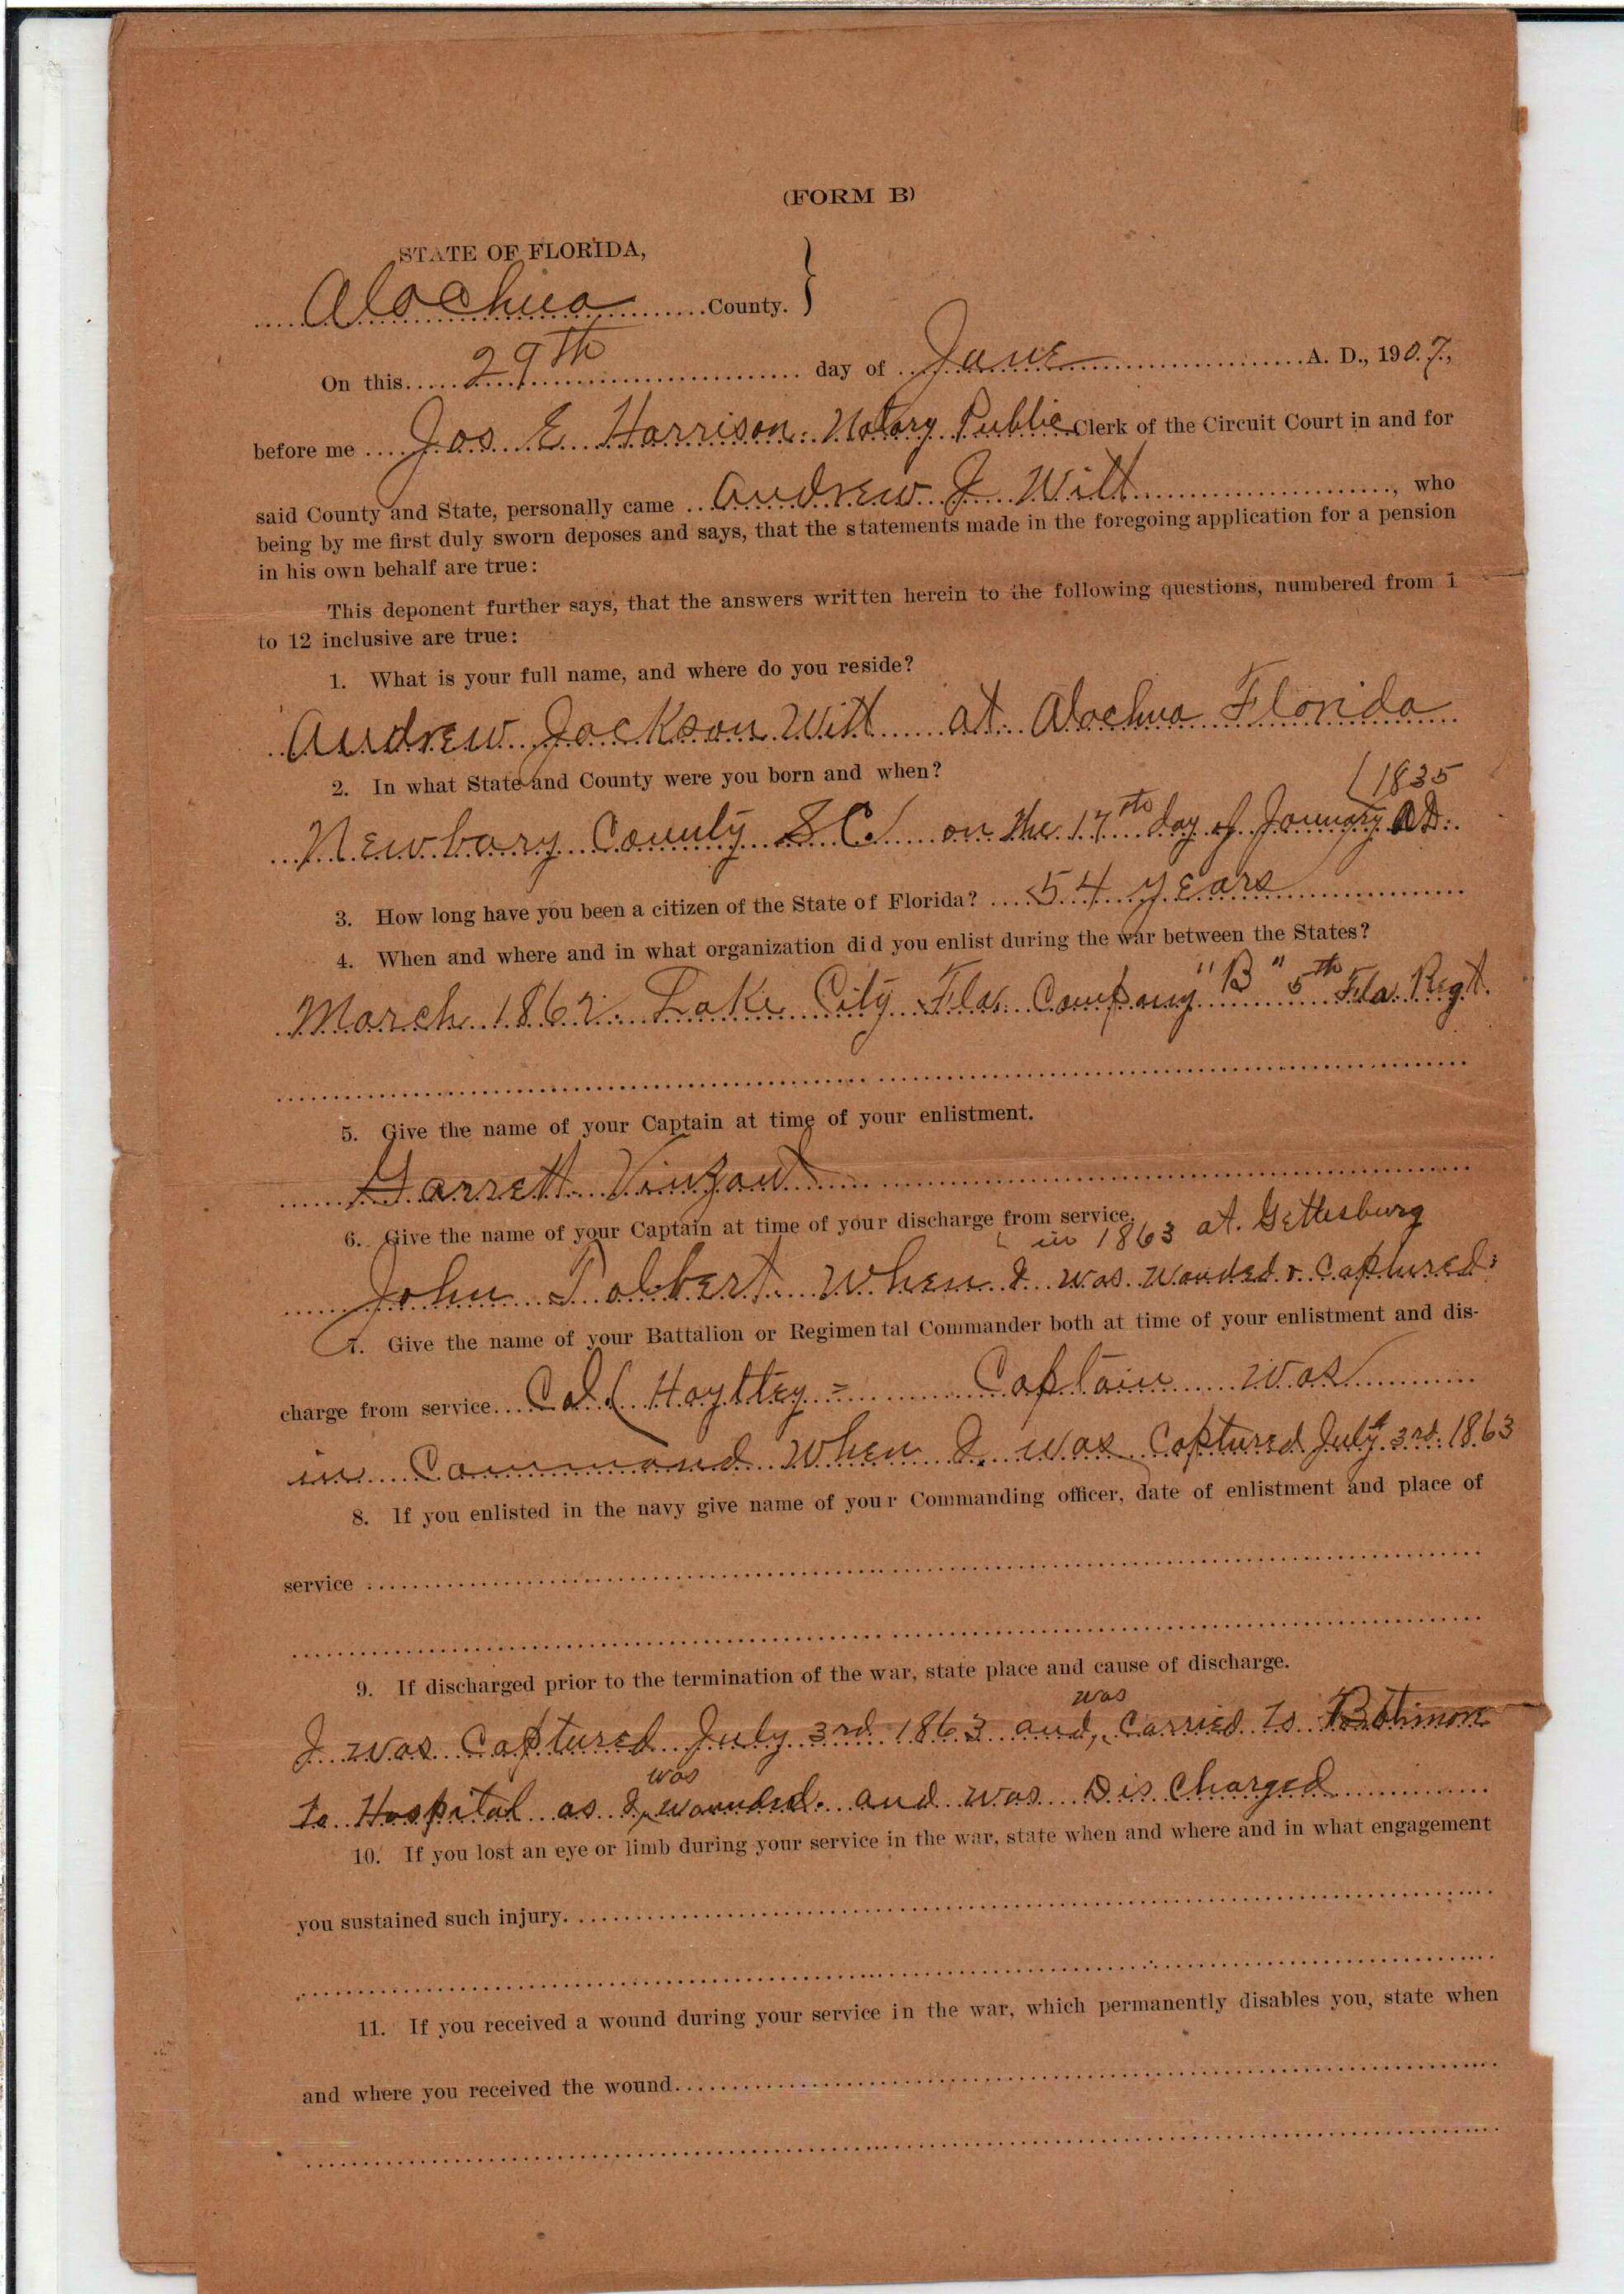 (FORM B)
STATE OF FLORIDA,
Alachua County. }
On this 29th day of June A. D., 1907,
before me Jos E Harrison. Notary Public Clerk of the Circuit Court in and for
said County and State, personally came Andrew J Witt, who
being by me first duly sworn deposes and says, that the statements made in the foregoing application for a pension
in his own behalf are true:
This deponent further says, that the answers written herein to the following questions, numbered from 1
to 12 inclusive are true:
1. What is your full name, and where do you reside?
Andrew Jackson Witt at Alachua Florida
2. In what State and County were you born and when?
( 1835
Newbary County S C. on the 17th day of January AD.
3. How long have you been a citizen of the State of Florida? 54 years
4. When and where and in what organization did you enlist during the war between the States?
March 1862. Lake City Fla. Company "B" 5th Fla. Regt.
5. Give the name of your Captain at time of your enlistment.
Garrett Vinzant
6. Give the name of your Captain at time of your discharge from service.
in 1863 at. Gettesburg
John Tolbert When I was wouded & Captured
7. Give the name of your Battalion or Regimental Commander both at time of your enlistment and dis-
charge from service. Col ( Hayttey = Captain was
in Command when I was Captured July 3rd. 1863
8. If you enlisted in the navy give name of your Commanding officer, date of enlistment and place of
service
9. If discharged prior to the termination of the war, state place and cause of discharge.
was
I was Captured July 3rd 1863 and, Carried to Batimon
was
to Hospital as I wounded. and was Dis Charged
10. If you lost an eye or limb during your service in the war, state when and where and in what engagement
you sustained such injury.
11. If you received a wound during your service in the war, which permanently disables you, state when
and where you received the wound.